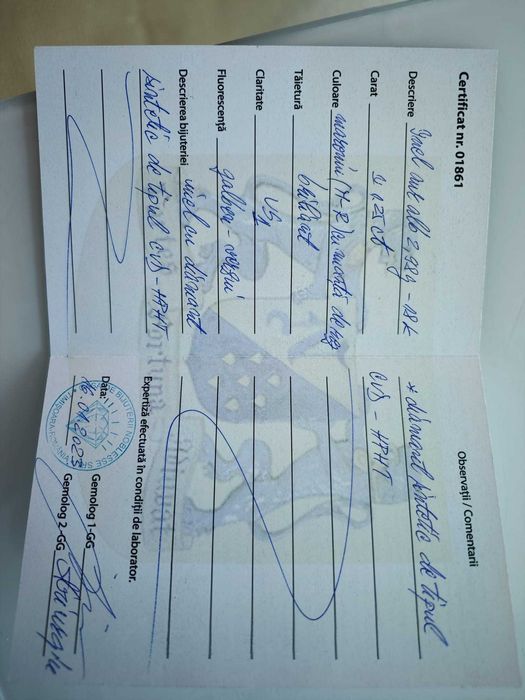 Certificat nr. 01861
Descriere Inel aur alb 2,98g - 18k
Carat 1,121 ct
Culoare maroniu (M-R) cu nuanță de
Tăietură briliant
Claritate VS1
Fluorescență galben - verzui
Descrierea bijuteriei inel cu diamant
sintetic de tipul CVD - HPHT
Observații / Comentarii
* diamant sintetic de tipul
CVD - HPHT
Expertiză efectuată în condiții de laborator.
Data: 16.01.2023
Gemolog 1-GG
Gemolog 2-GG